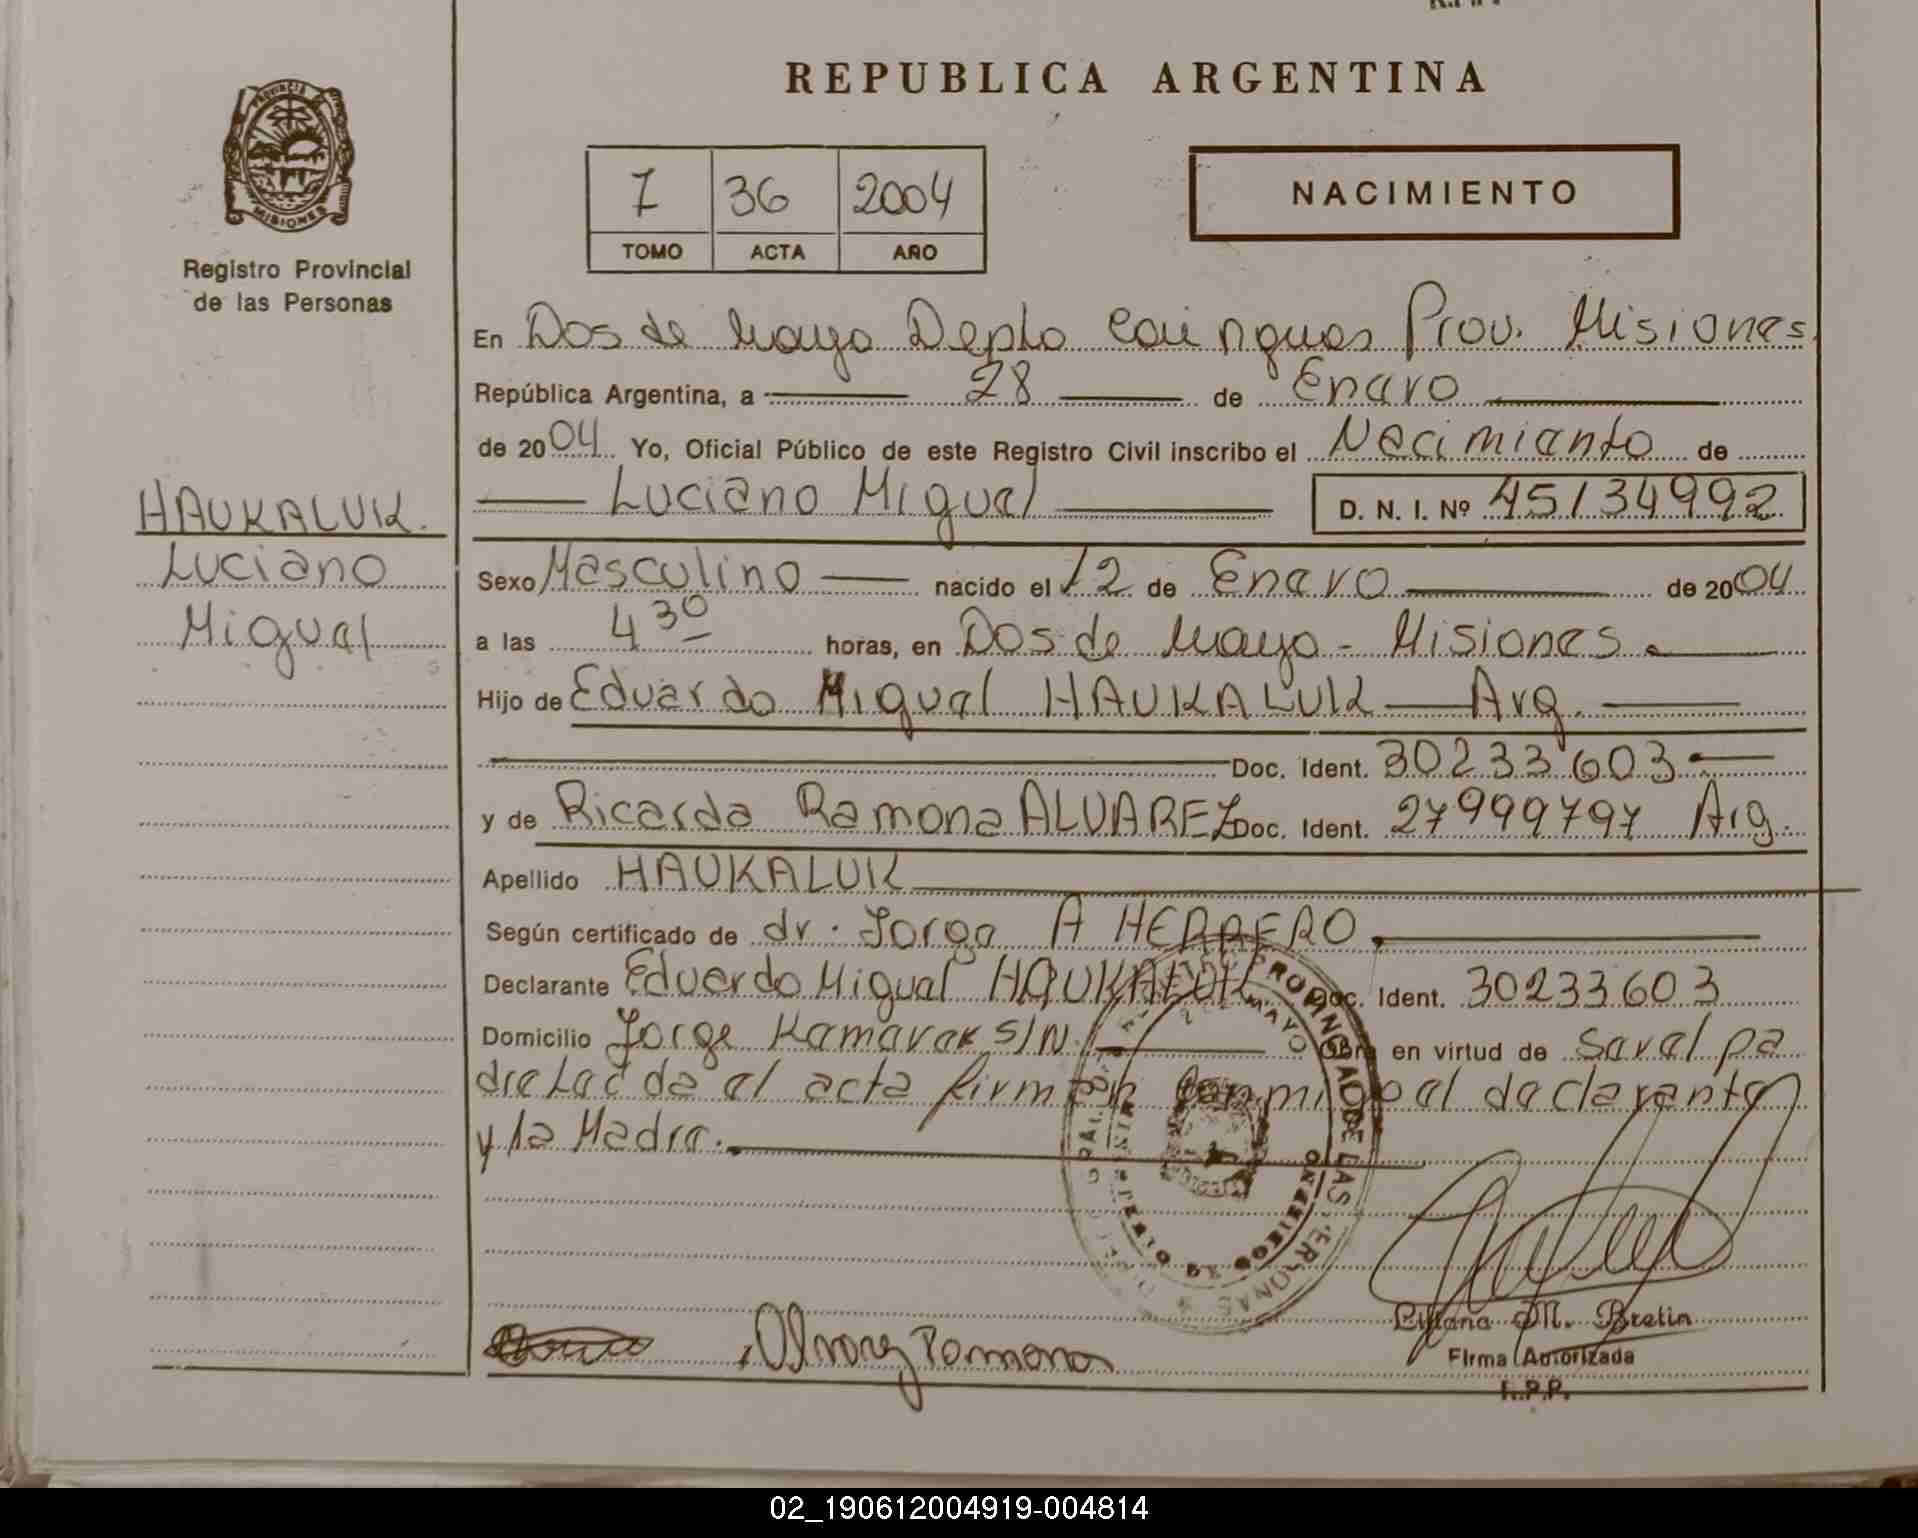 REPUBLICA ARGENTINA
PROVINCIA DE
MISIONES
Registro Provincial
de las Personas
I 36 2004
TOMO ACTA AÑO
NACIMIENTO
En Dos de Mayo Depto Cainguas Prov. Misiones
República Argentina, a 28 de Enero
de 2004 Yo, Oficial Público de este Registro Civil inscribo el Nacimiento de
Luciano Miguel D. N. I. Nº 45134992
HAUKALUK.
Luciano
Miguel
Sexo Masculino nacido el 12 de Enero de 2004
a las 4 30 horas, en Dos de Mayo - Misiones
Hijo de Eduardo Miguel HAUKALUK Arg.
Doc. Ident. 30233603
y de Ricarda Ramona ALVAREZ Doc. Ident. 27999797 Arg.
Apellido HAUKALUK
Según certificado de dr. Jorge A HERRERO.
Declarante Eduardo Miguel HAUKALUK Doc. Ident. 30233603
Domicilio Jorge S/N. Obra en virtud de Ser el pa
dre Leída el acta firman conmigo el declarante
y la Madre.
Alvarez Ramona
Liliana M. Bretin
Firma Autorizada
R.P.P.
02_190612004919-004814